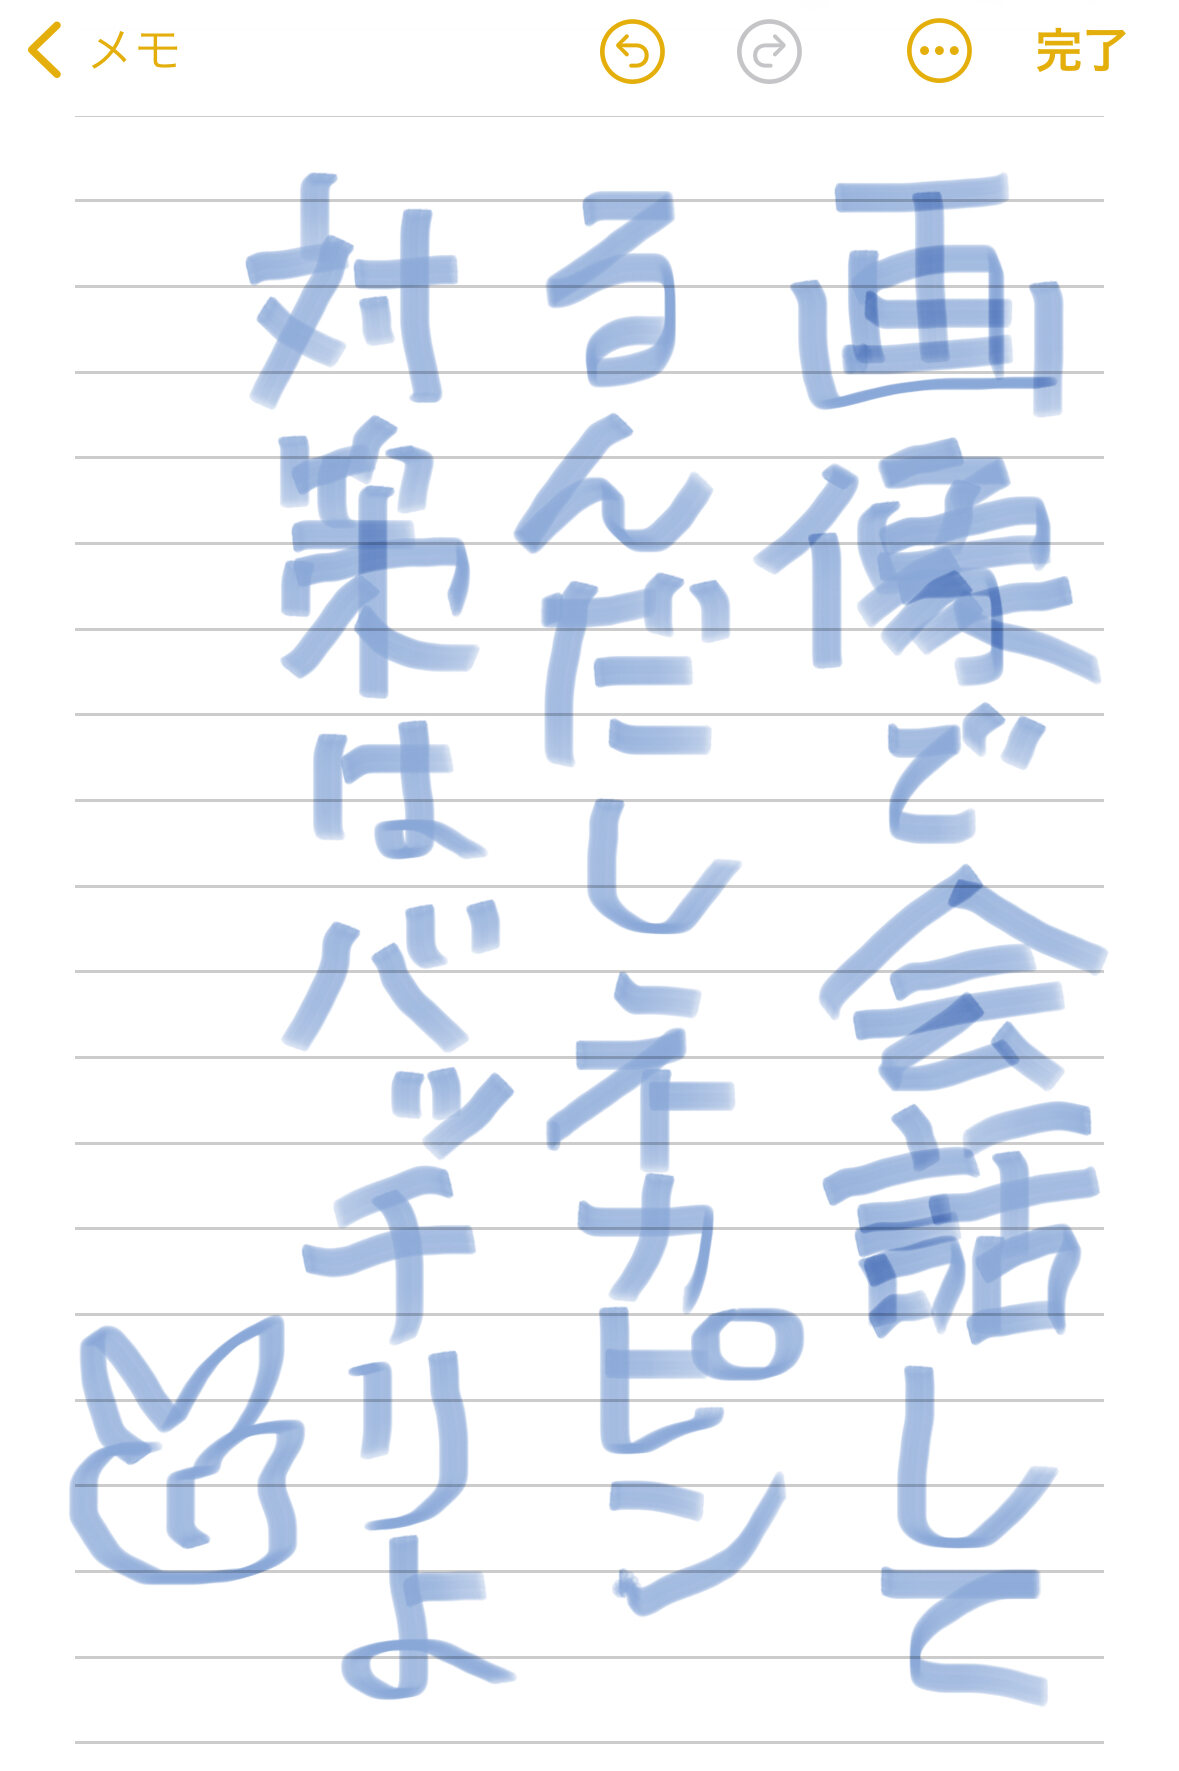 メモ
完了
画像で会話して
るんだしネカピン
対策はバッチリよ